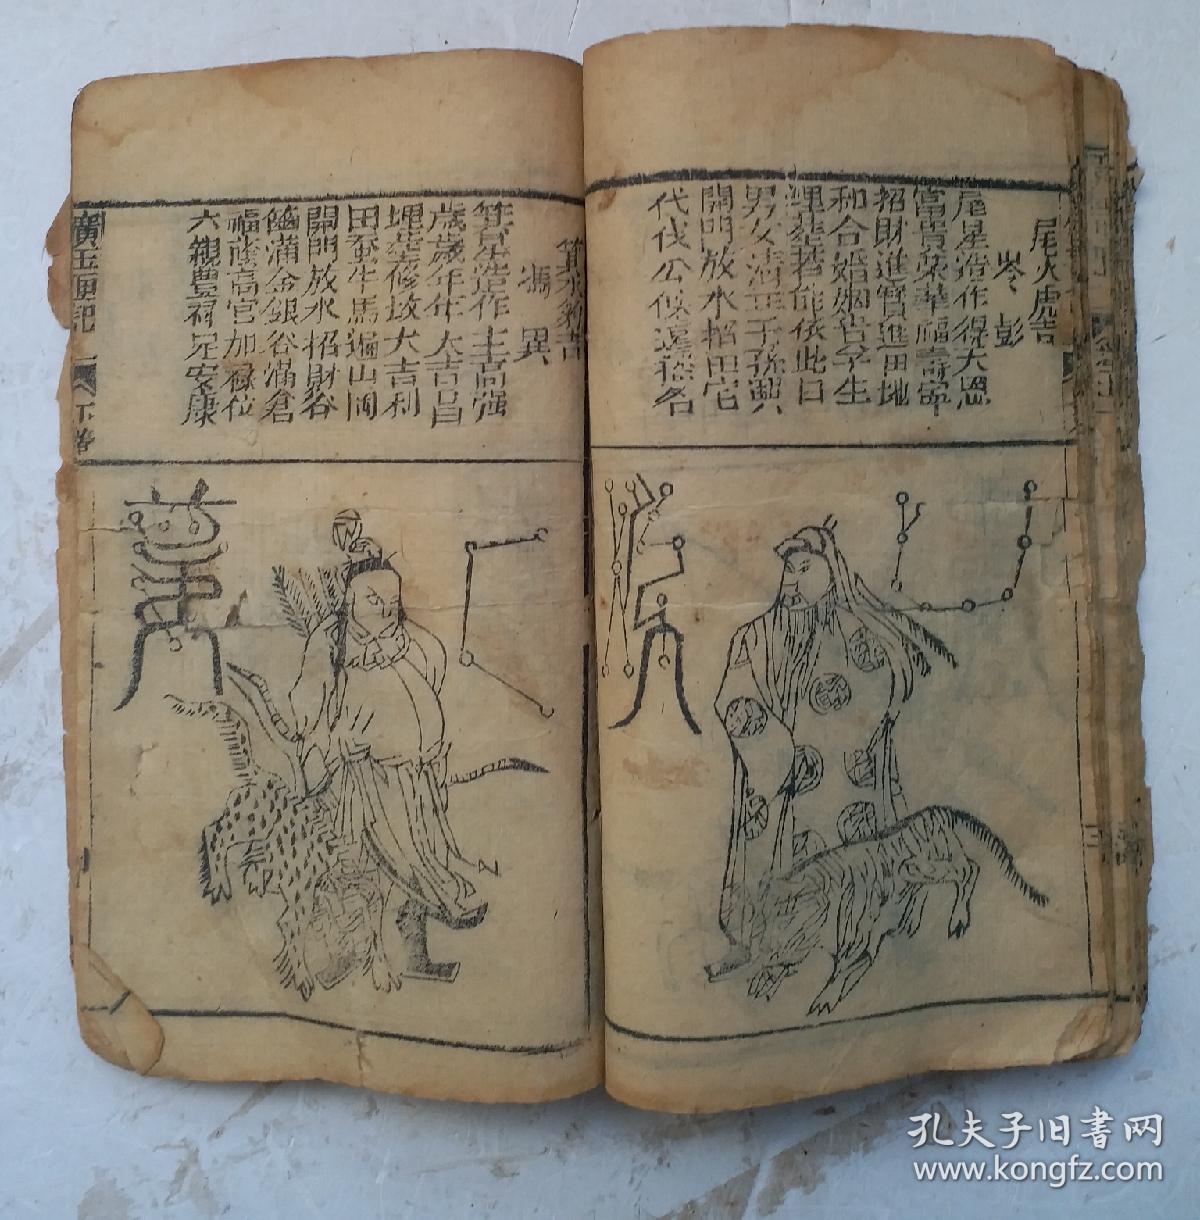 尾火虎吉
岑彭
尾星造作得大恩
富貴榮華福壽寧
招財進寶進田地
和合婚姻告子生
埋塟若能依此日
男女清正子孫興
開門放水招田宅
代伐公候遠播名
箕水豹吉
馮異
箕星造作主高强
歲歲年年大吉昌
埋塟修坟大吉利
田蚕牛馬遍山岡
開門放水招財谷
篋滿金銀谷滿倉
福蔭高官加祿位
六親豊祠足安康
廣玉匣記
下卷
孔夫子旧書网
www.kongfz.com